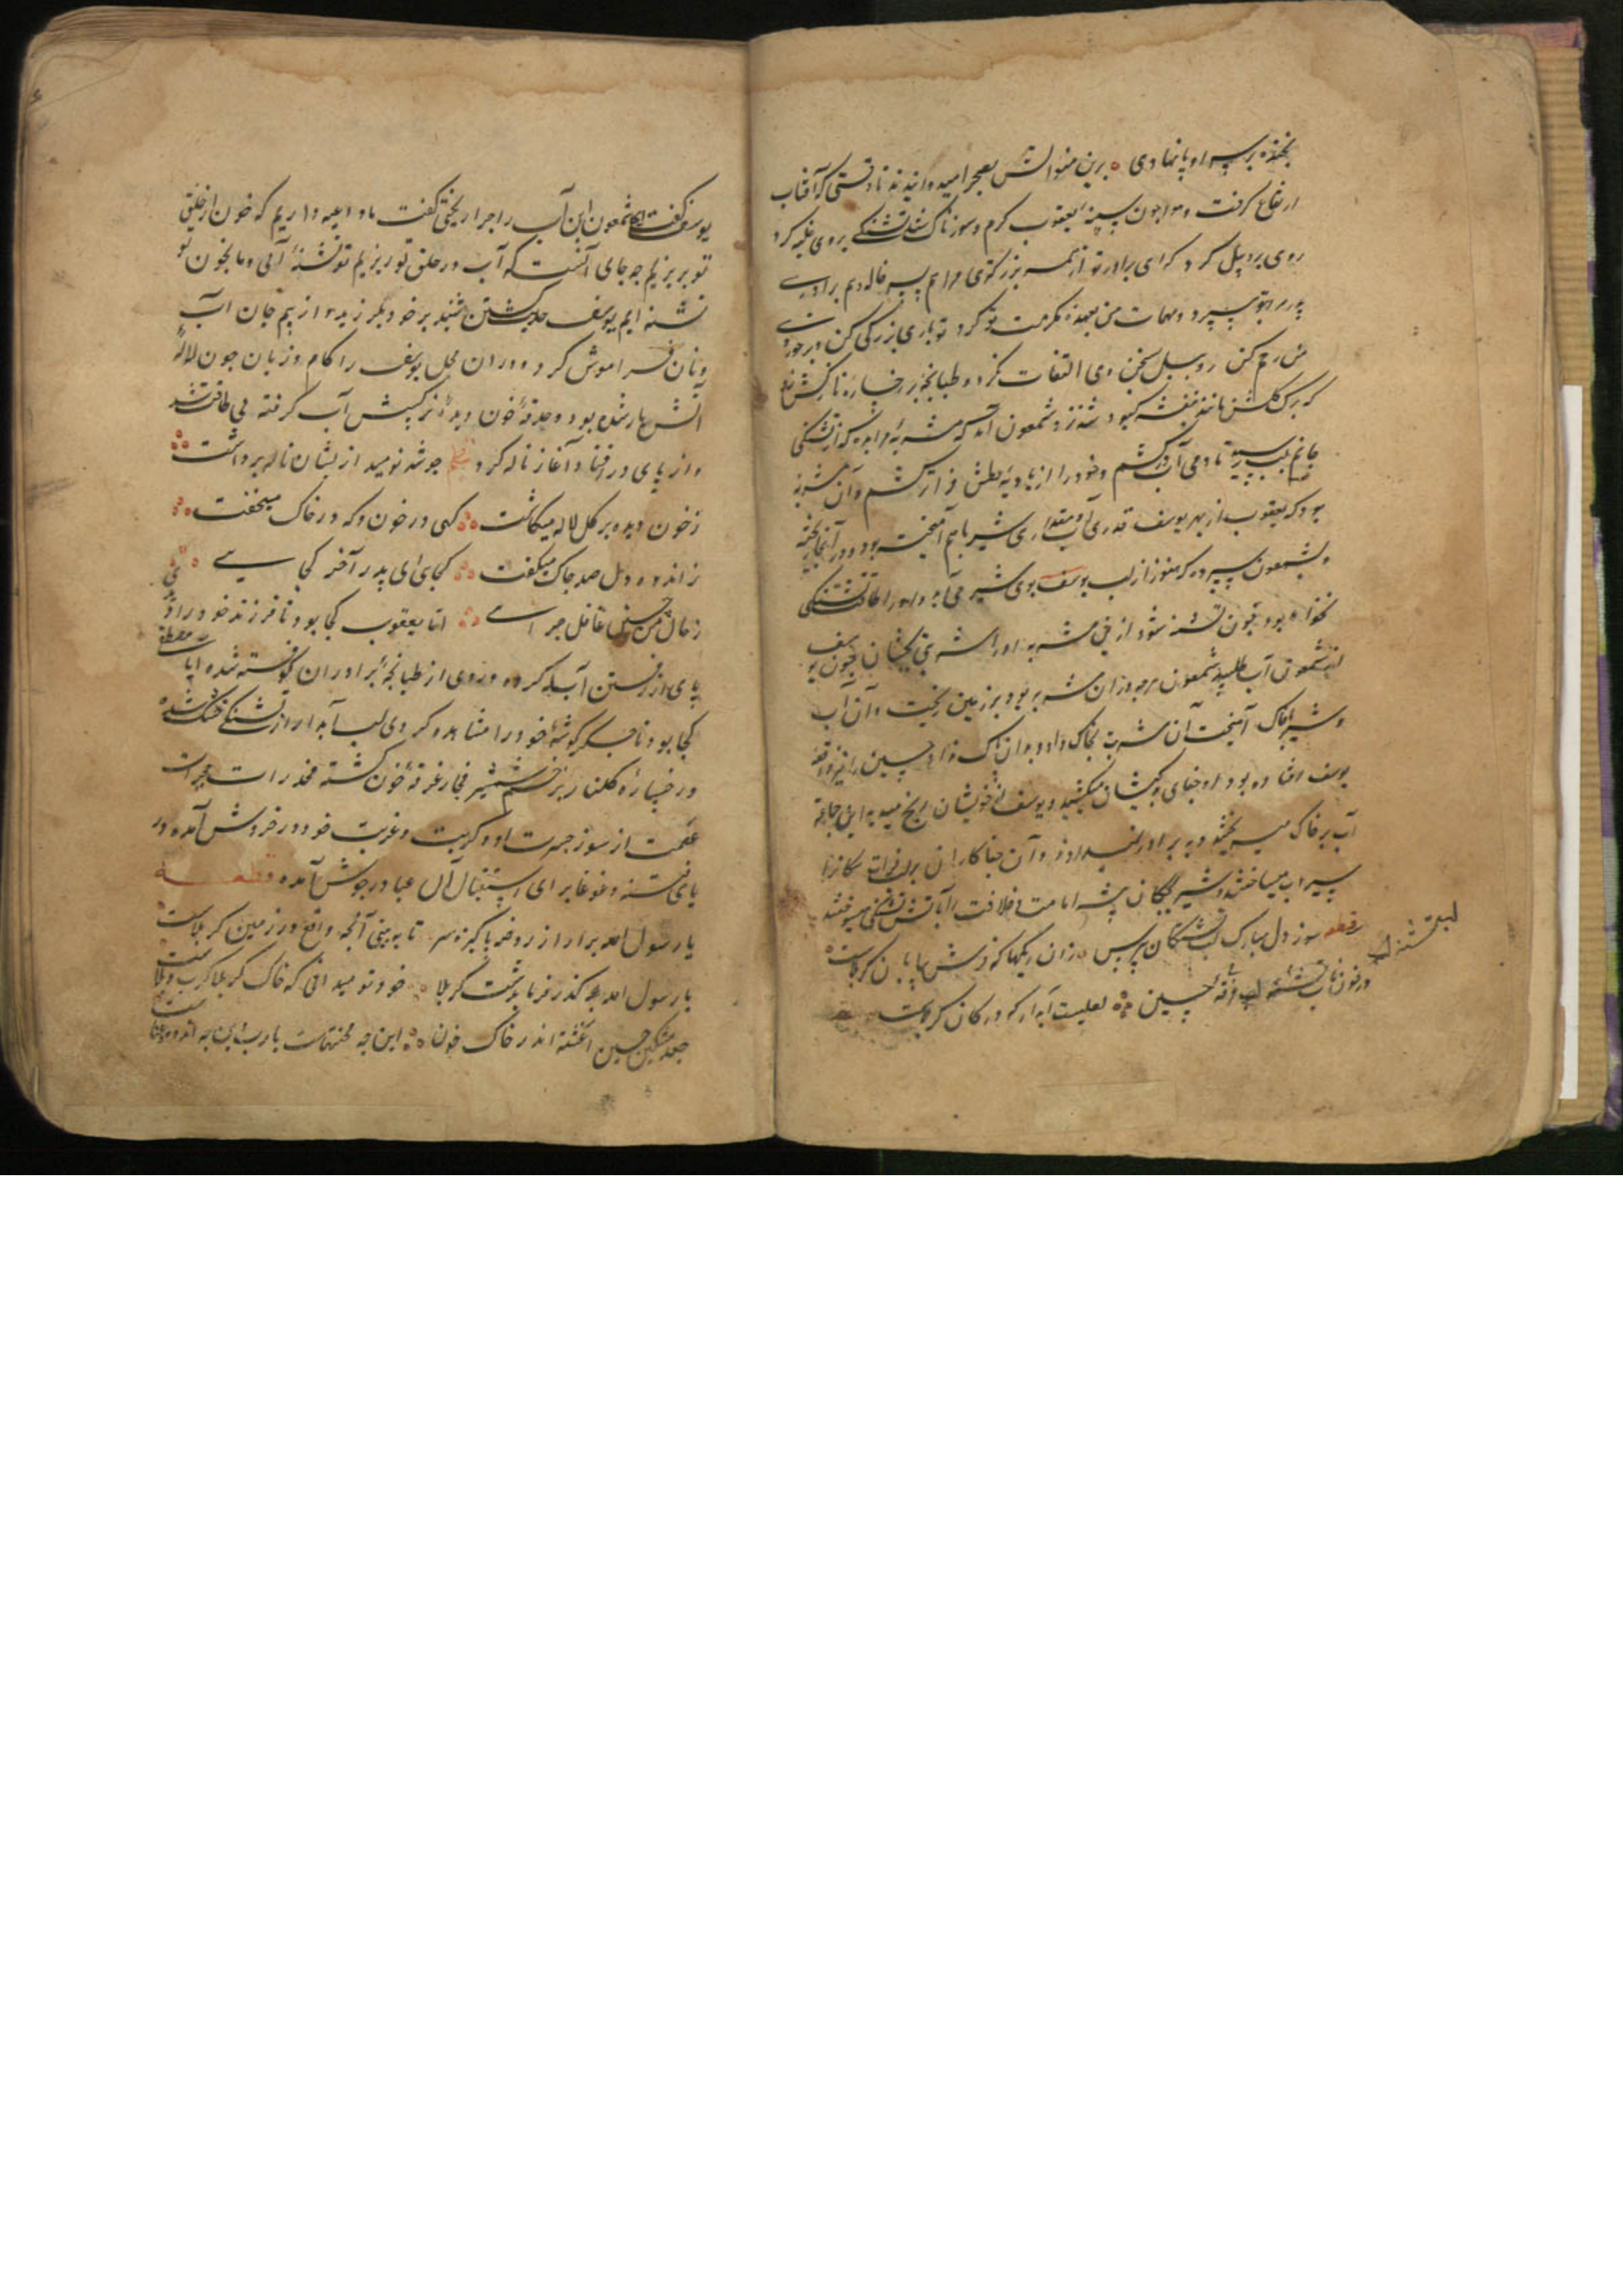 بخنده بر سر او پا نهادی برین منوالش بصحرا میدوانیدند تا وقتی که آفتاب
ارتفاع گرفت و هوا چون سینه یعقوب گرم و سوزناک شد تشنگی بر وی غلبه کرد
روی بروبیل کرد که ای برادر تو از همه بزرگتری مرا هم پسر خاله و هم برادری
پدر مرا بتو سپرد و مهمات من بعهده مکرمت تو کرد تو باری بزرگی کن و بر خوردی
من رحم کن روبیل بسخن وی التفات نکرد و طبانچه بر رخساره نازکش زد
که برک کلش مانند بنفشه کبود شد نزد شمعون آمد که مشربه را بده که از تشنگی
جانم بلب رسید تا دمی آب در کشم و خود را از بادیه عطش فراتر کشم و آن مشربه
بود که یعقوب از بهر یوسف قدری آب و مقداری شیر باهم آمیخته بود و در آنجا ریخته
و بشمعون سپرده که هنوز از لب یوسف بوی شیر می آید و او را طاقت تشنگی
نخواهد بود چون تشنه شود ازین مشربه او را شربتی بچشان چون یوسف
از شمعون آب طلبید شمعون هر چه در آن مشربه بود بر زمین ریخت و آن آب
و شیر با خاک آمیخت آن شربت بخاک داد و بدان خاک
یوسف افتاده بود او جفای میکشید و یوسف از خویشان رنج میدید این جماعة
آب بر خاک میریختند و به برادر نمیدادند و آن جفاکاران بر لب فرات سکانرا
سیراب میساختند و شیر بچکان بیشه امامت و خلافت را بآتش تشنگی میسوختند
قطعه سوز دل مبارک لب تشنگان بپرس زان ریکها که فرش بیابان کربلاست
در خون ناب تشنه لب حسین لعلیست آبدار که در کان کربلاست
لب تشنه
یوسف گفت ای شمعون این آب را چرا ریختی گفت ما داعیه داریم که خون از حلق
تو بریزیم چه جای آنست که آب در حلق تو ریزیم تو تشنه آبی و ما بخون تو
تشنه ایم یوسف حدیث کشتن شنید بر خود بلرزید و از بیم جان آب
و نان فراموش کرد و در آن محل یوسف را کام و زبان چون لاله
آتش بار شده بود و حدقه خون دیده نرکسش آب گرفته بی طاقت شد
و از پای در افتاد و آغاز ناله کرد نظم چو شد نومید از یشان ناله برداشت
ز خون دیده بر کل لاله میکاشت کهی در خون و که در خاک میخفت
ز اندوه دل صد چاک میگفت کجایی ای پدر آخر کجایی
ز حال من چنین غافل چرایی اما یعقوب کجا بود تا فرزند خود را دیدی
پای از رفتن آبله کرده و روی از طبانچه برادران کوفته شده ایا
کجا بود تا جکرکوشه خود را مشاهده کردی لب آبدار از تشنگی خشک شده
و رخساره کلنار بزخم شمشیر فجار غرقه خون گشته مخدرات حجرات
عصمت از سوز حسرت او و کربت و غربت خود در خروش آمده و در
یای فتنه و غوغا برای استقبال آل عبا در جوش آمده قطعه
یا رسول الله برآر از روضه پاکیزه سر تا ببینی آنچه واقع در زمین کربلاست
یا رسول الله گذر فرما بدشت کربلا خود تو میدانی که خاک کربلا کرب و بلاست
جعد مشکین حسین آغشته اندر خاک و خون این چه محنتهاست یا رب این چه اندوه و عناست